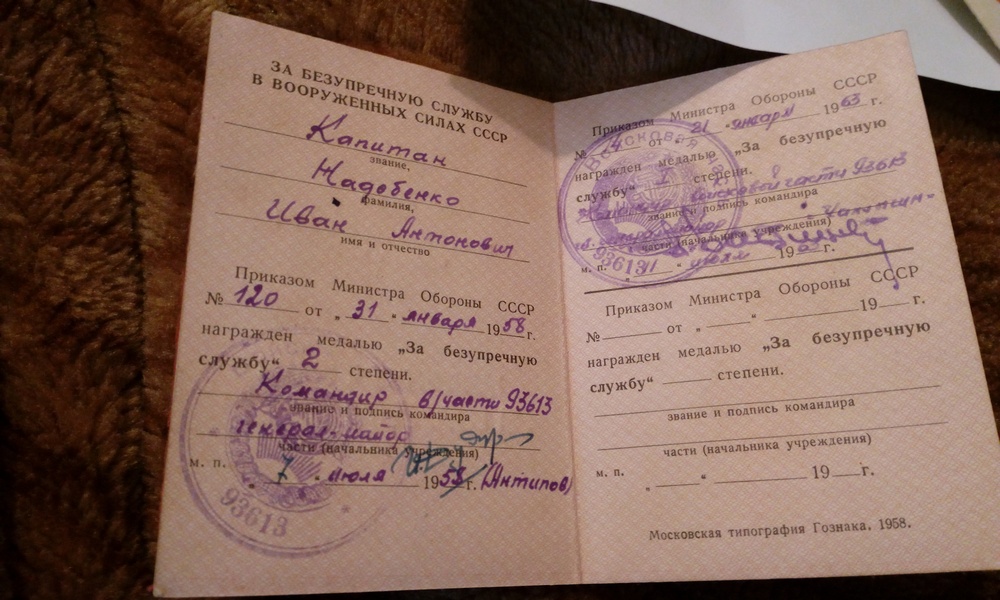 ЗА БЕЗУПРЕЧНУЮ СЛУЖБУ
В ВООРУЖЕННЫХ СИЛАХ СССР
Капитан
звание,
Надобенко
фамилия,
Иван Антонович
имя и отчество
Приказом Министра Обороны СССР
№ 120 от „ 31 “ января 1958 г.
награжден медалью „За безупречную
службу“ 2 степени.
Командир в/части 93613
звание и подпись командира
генерал-майор
части (начальника учреждения)
м. п. „ 7 “ июля 1958 г. (Антипов)
93613
Приказом Министра Обороны СССР
№ 14 от „ 21 “ января 1963 г.
награжден медалью „За безупречную
службу“ I степени.
войсковой части 93613
звание и подпись командира
части (начальника учреждения)
м. п. 19 г.
Войсковая
93613
Приказом Министра Обороны СССР
№ от „ “ 19 г.
награжден медалью „За безупречную
службу“ степени.
звание и подпись командира
части (начальника учреждения)
м. п. „ “ 19 г.
Московская типография Гознака. 1958.